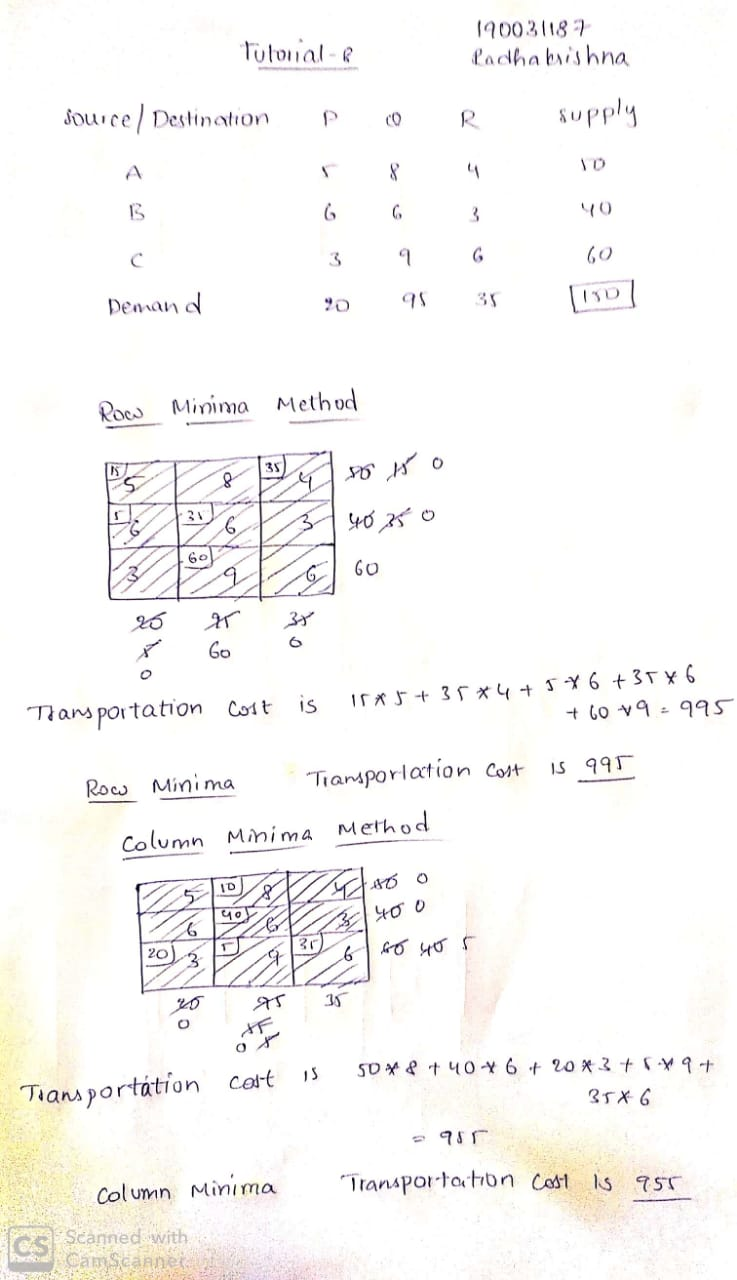 190031187
Tutorial-8
Radhakrishna
Source/Destination P Q R Supply
A 5 8 4 50
B 6 6 3 40
C 3 9 6 60
Demand 20 95 35 150
Row Minima Method
15 5 8 35 4 50 15 0
5 6 35 6 3 40 35 0
3 60 9 6 60
20 95 35
5 60 0
0
Transportation Cost is 15*5+35*4+5*6+35*6
+60*9=995
Row Minima Transportation Cost is 995
Column Minima Method
5 10 8 4 0
6 40 6 3 40 0
20 3 5 9 35 6 60 40 5
20 95 35
0
0 5
Transportation cost is 50*8+40*6+20*3+5*9+
35*6
= 955
Column Minima Transportation Cost is 955
CS Scanned with
CamScanner